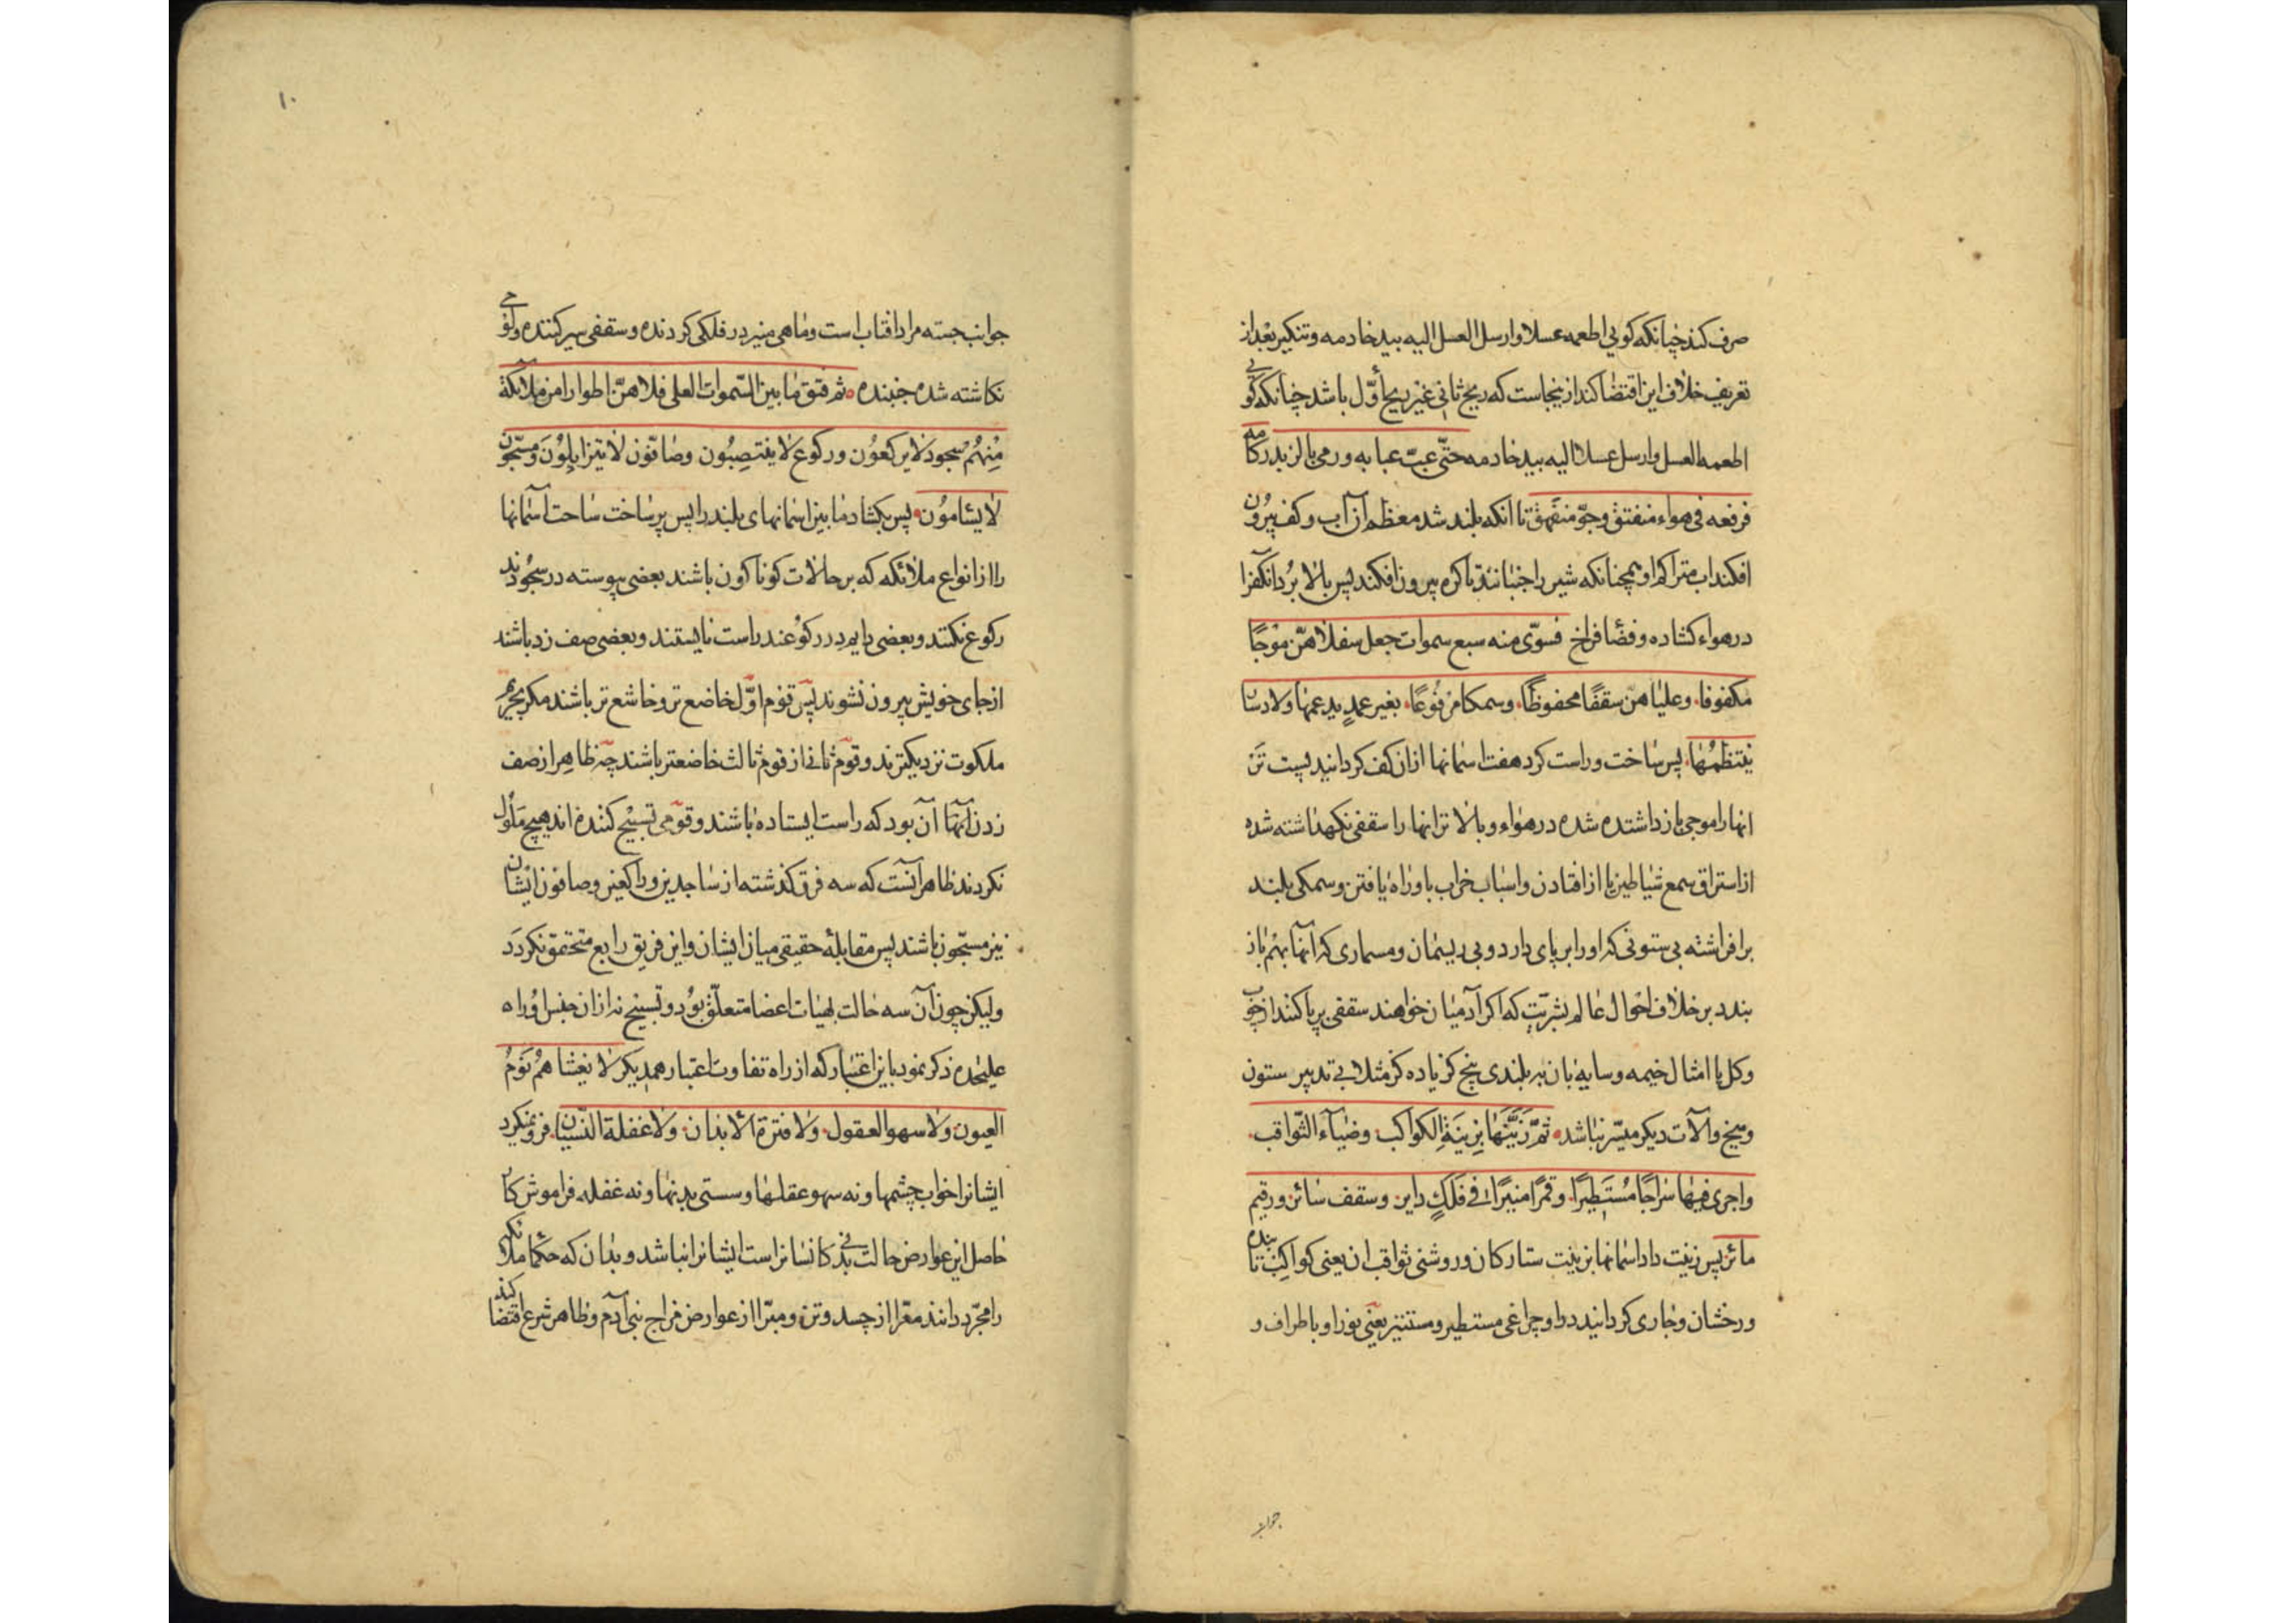 صرف کند چنانکه کویی اطعمه عسلا وارسل العسل الیه بید خادمه وتنکیر بعد از
تعریف خلاف این اقتضا کند ازینجاست که ریح ثانی غیر ریح أوّل باشد چنانکه کویی
اطعمه العسل وارسل عسلا الیه بید خادمه حتّی عبّ عبابه ورمی بالزبد رکامه
فرفعه فی هواء منفتق وجوّ منفهق تا انکه بلند شد معظم آن آب وکف بیرون
افکند اب متراکم او همچنانکه شیر را جنبانند تا کره بیرون افکند پس بالا برد انکف را
در هواء کشاده وفضا فراخ فسوّی منه سبع سموات جعل سفلاهنّ موجًا
مکفوفا وعلیاهنّ سقفًا محفوظًا وسمکا مرفوعًا بغیر عمدٍ یدعمها ولا دسار
ینتظمها پس ساخت وراست کرد هفت اسمانها ازان کف کردانید پست تر
انها را موجی باز داشته شده در هواء و بالاتر انها را سقفی نکهداشته شده
از استراق سمع شیاطین یا از افتادن واسباب خراب باو راه یافتن وسمکی بلند
برافراشته بی ستونی که او را بر پای دارد وبی ریسمان ومسماری که آنها بهم باز
بندد بر خلاف احوال عالم بشریت که اکر آدمیان خواهند سقفی برپا کنند از چوب
وکل یا امثال خیمه وسایه بان به بلندی پنج کز یا ده کز مثلا بی تدبیر ستون
ومیخ وآلات دیکر میسّر نباشد ثمّ زیّنها بزینة الکواکب وضیآء الثّواقب
واجری فیها سراجًا مُستطیرًا وقمرًا منیرًا فی فلکٍ دایر وسقف سائر ورقیم
مائر پس زینت داد اسمانها بزینت ستارکان وروشنی ثواقب ان یعنی کواکب تابنده
ودرخشان وجاری کردانید در او چراغی مستطیر ومستنیر یعنی نور او باطراف و
جوانب
۱۰
جوانب جسته مراد افتاب است وماهی منیر در فلکی کردنده وسقفی سیر کننده ولوحی
نکاشته شده جنبنده ثم فتق ما بین السّموات العلی فملأهنّ اطوارا من ملائکة
مِنهُم سُجود لا یرکعُون ورکوع لا ینتصِبُون وصافّون لا یتزایلُونَ ومسبّحون
لا یسأمُون پس بکشاد ما بین اسمانهای بلند را پس پر ساخت ساحت اسمانها
را از انواع ملائکه که بر حالات کوناکون باشند بعضی پیوسته در سجودند
رکوع نکنند وبعضی دایم در رکوعند راست نایستند وبعضی صف زد باشند
از جای خویش بیرون نشوند پس قوم اوّل خاضع تر وخاشع تر باشند مکر بحریم
ملکوت نزدیکترند وقوم ثانی از قوم ثالث خاضعتر باشند چه ظاهر از صف
زدن آنها آن بود که راست ایستاده باشند وقومی تسبیح کننده اند هیچ ملول
نکردند ظاهر آنست که سه فرق کذشته از ساجدین وراکعین وصافون ایشان
نیز مسبّحون باشند پس مقابلهٔ حقیقی میان ایشان واین فریق رابع متحقق نکردد
ولیکن چون آن سه حالت بهیات اعضا متعلّق بود وتسبیح نه ازان جنس او را ه
علیحده ذکر نمود باین اعتبار که از راه تفاوت اعتبار همدیکر لا یغشاهُم نَومُ
العیون ولا سهو العقول ولا فترة الأبدان ولا غفلة النّسیان فرو نمیکیرد
ایشانرا خواب چشمها ونه سهو عقلها وسستی بدنها ونه غفله فراموش کار
حاصل این عوارض حالت بدنی که انسانراست ایشانرا نباشد وبدان که حکما ملائکه
را مجرّد دانند معرّا از جسد وتن ومبرّا از عوارض مزاج بنی آدم وظاهر شرع اقتضا کند